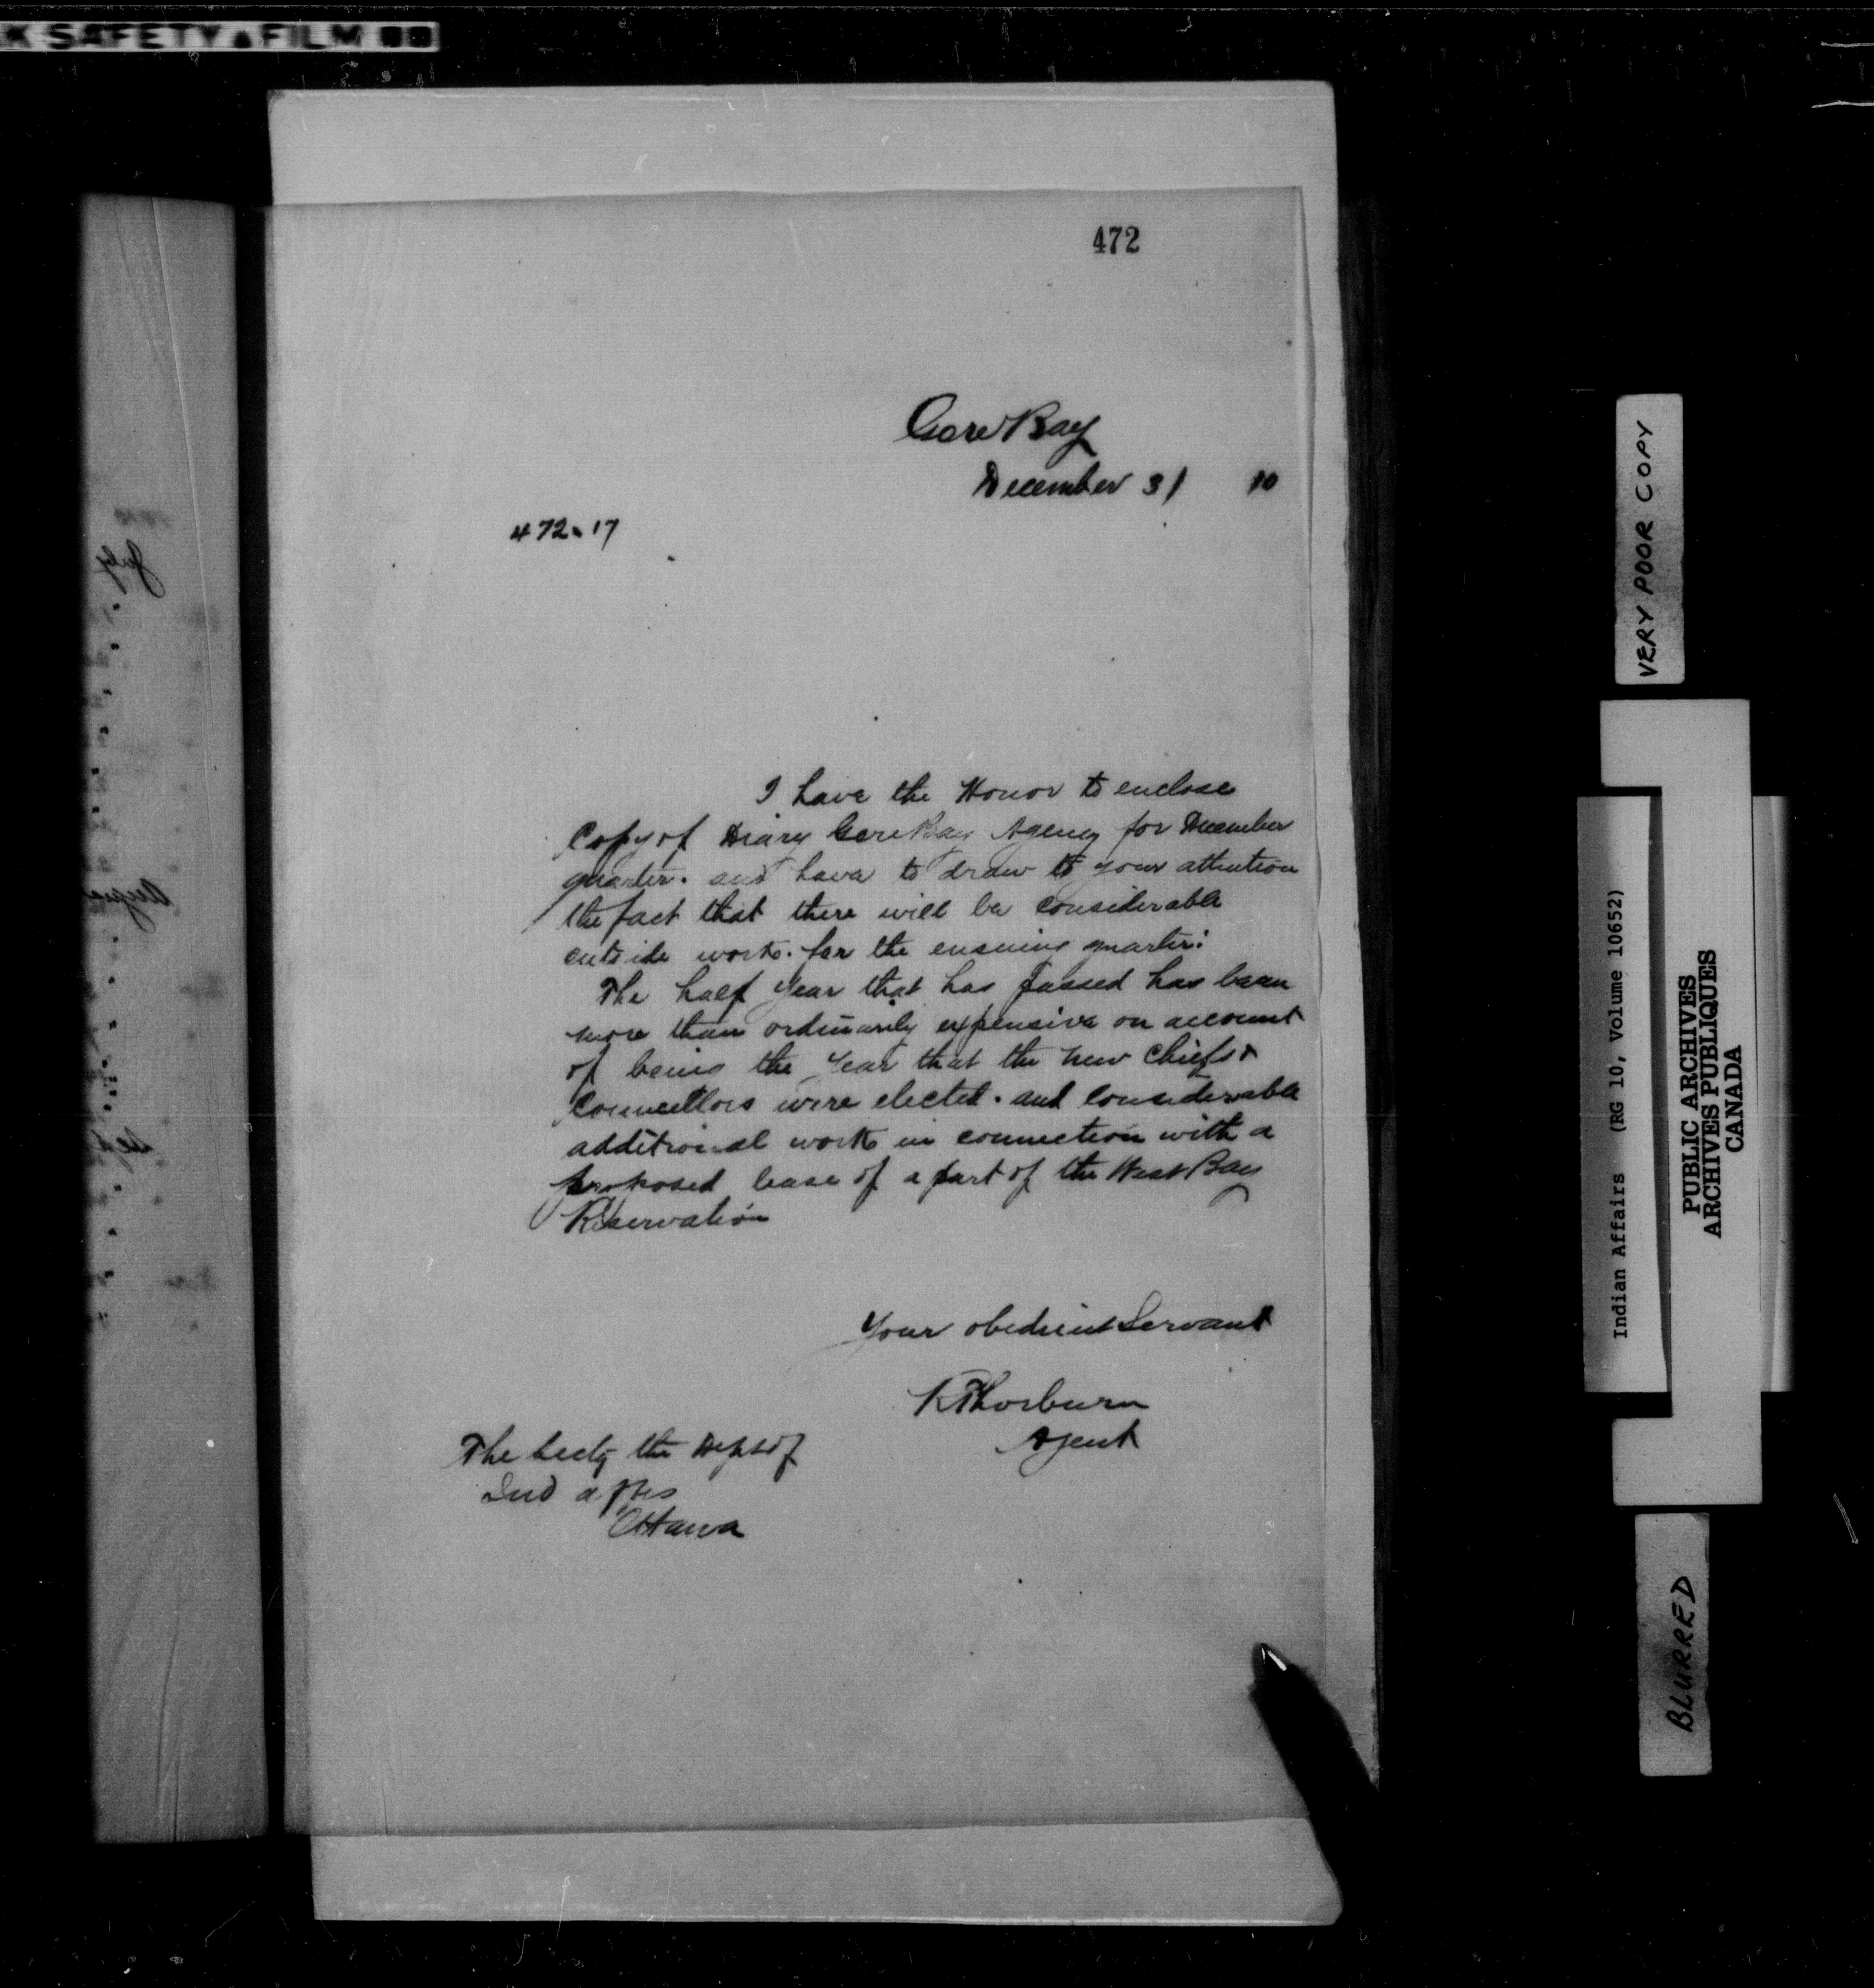 K SAFETY FILM
472
Gore Bay
December 31 10
472-17
I have the Honor to enclose
Copy of Diary Gore Bay Agency for December
quarter. and have to draw to your attention
the fact that there will be considerable
outside work. for the ensuing quarter.
The half Year that has passed has been
more than ordinarily expensive on account
of being the Year that the new Chiefs &
Councellors were elected. and considerable
additional work in connection with a
proposed lease of a part of the West Bay
Reservation
Your obedient Servant
R Thorburn
Agent
The Secty the Dept of
Ind affrs
Ottawa
July
VERY POOR COPY
Indian Affairs (RG 10, Volume 10652)
PUBLIC ARCHIVES
ARCHIVES PUBLIQUES
CANADA
BLURRED